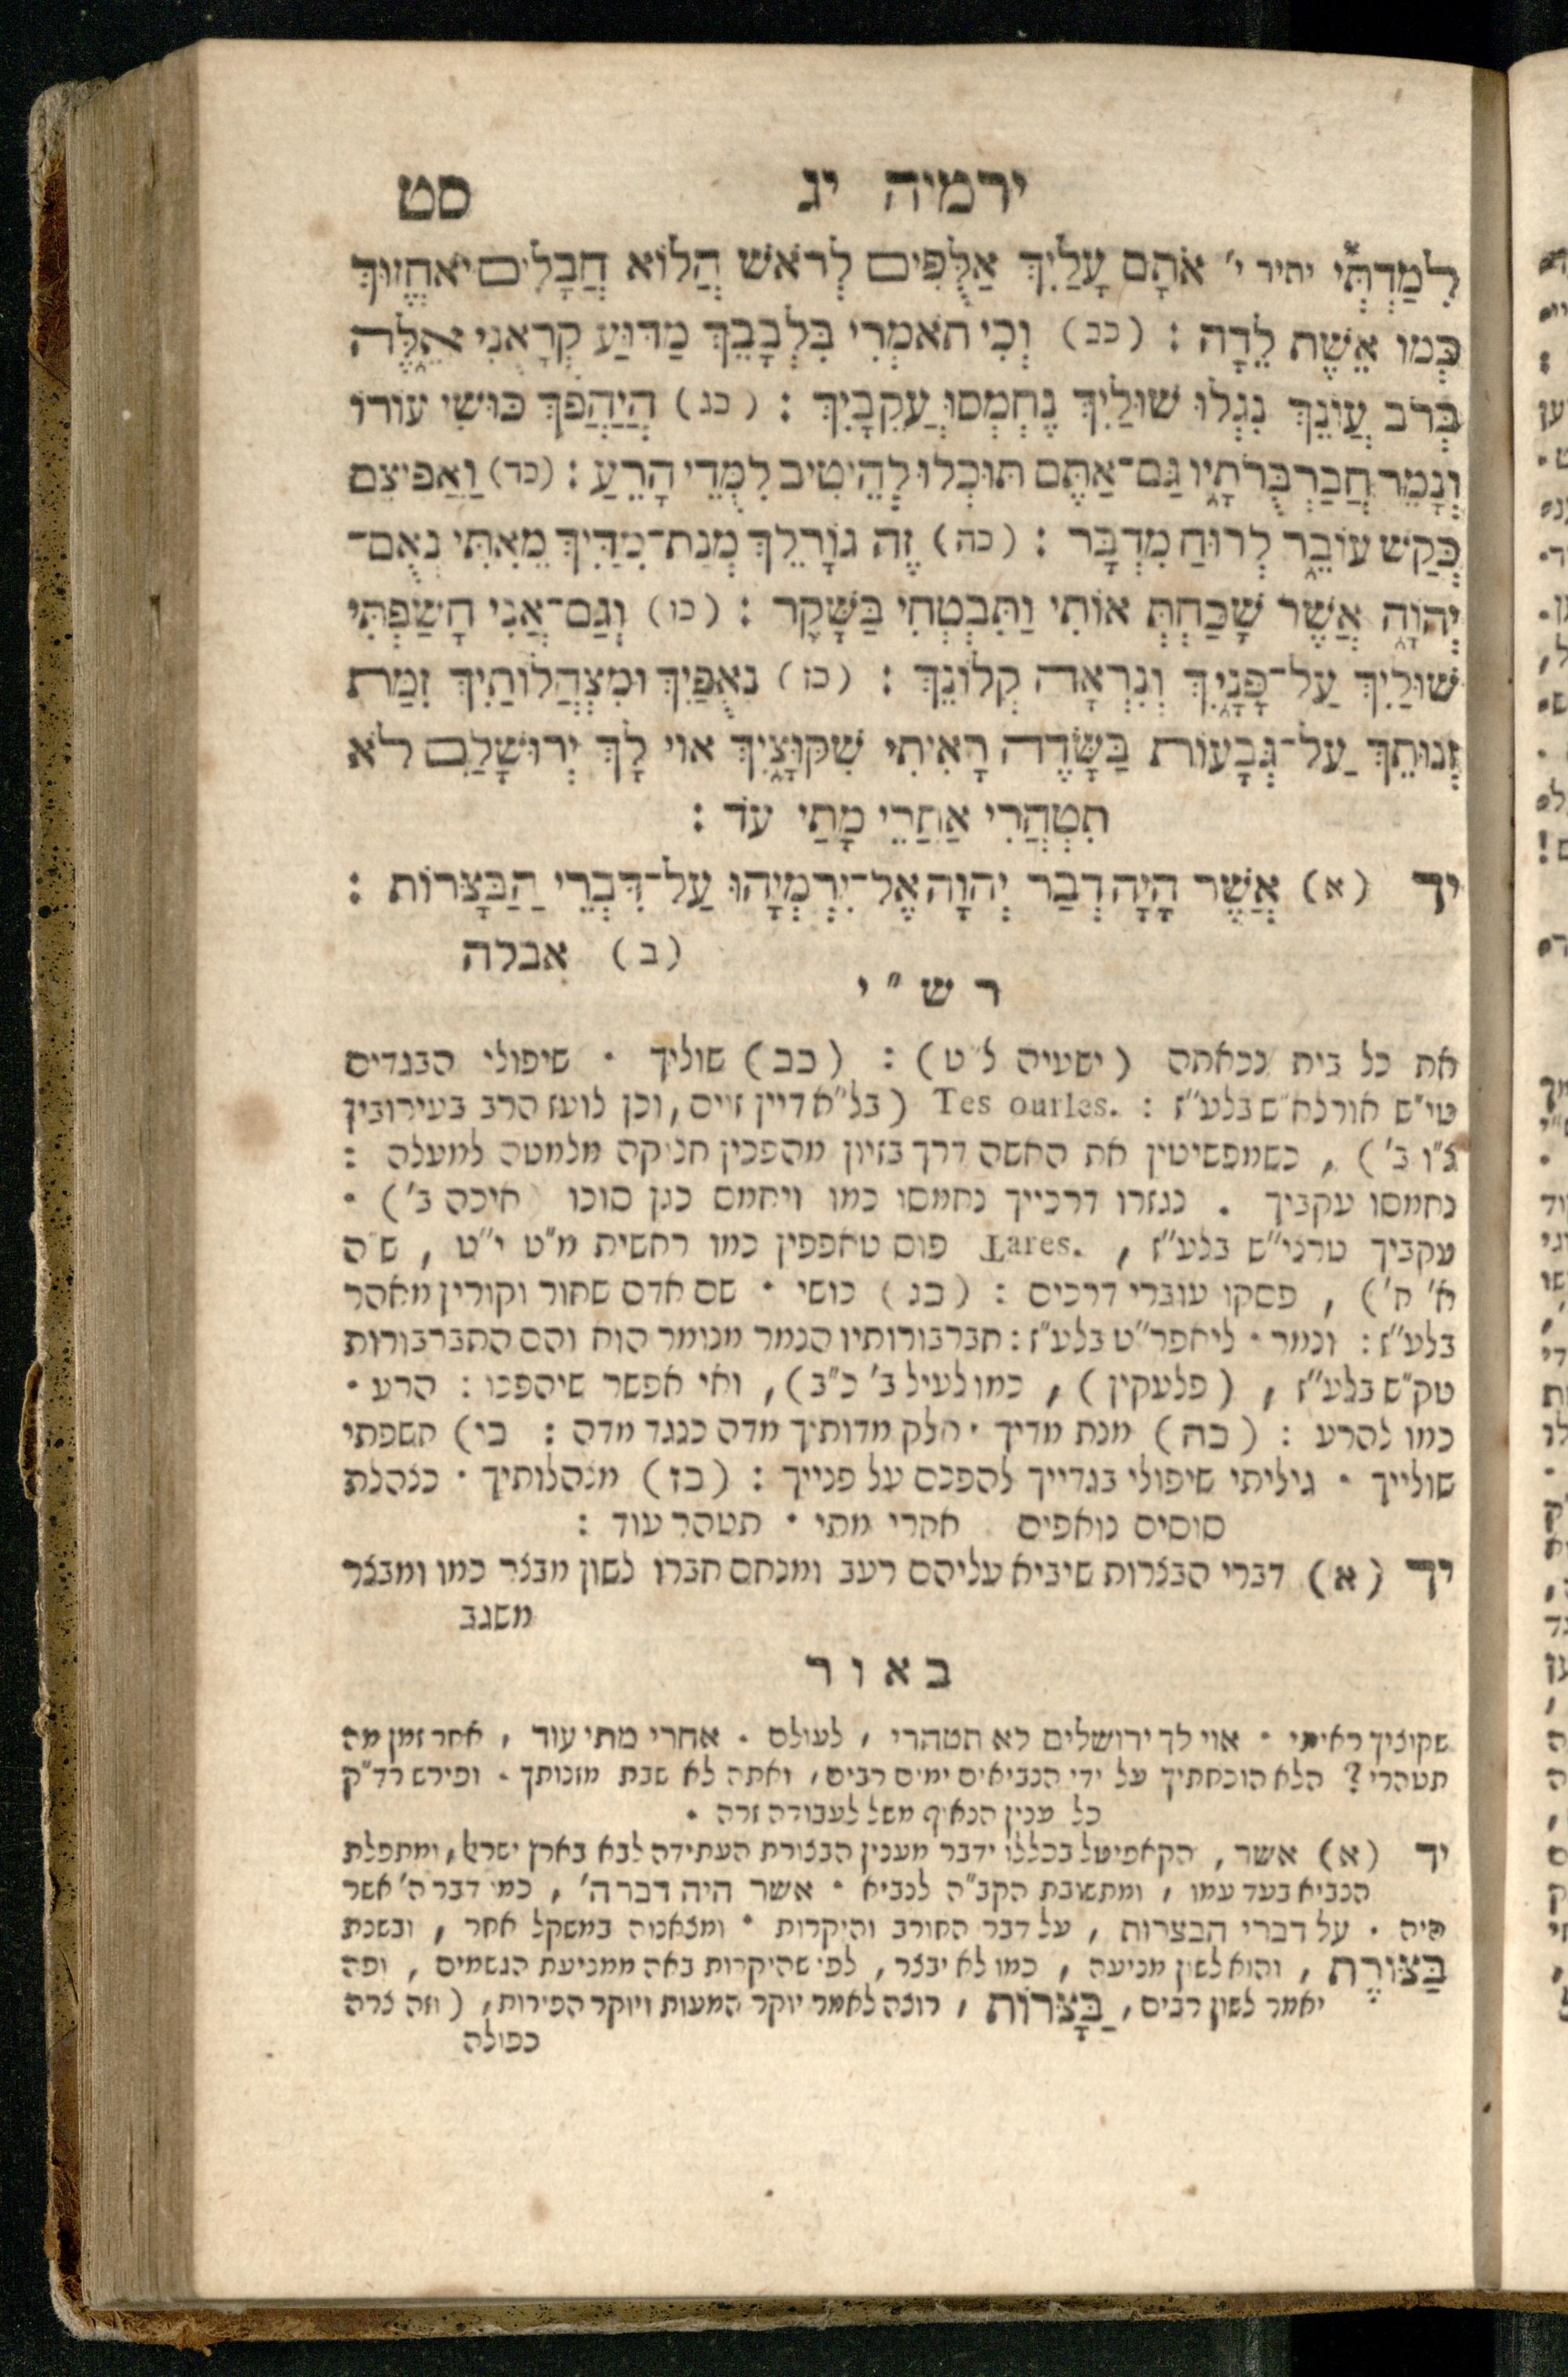 ירמיה יג סט
לִמַדְתְּי יתיר י' אֹתָם עָלַיִךְ אַלֻּפִים לְרֹאשׁ הֲלוֹא חֲבָלִים יֹאחֱזוּךְ
כְּמוֹ אֵשֶׁת לֵדָה : (כב) וְכִי תֹאמְרִי בִּלְבָבֵךְ מַדּוּעַ קְרָאֻנִי אֵלֶּה
בְּרֹב עֲוֹנֵךְ נִגְלוּ שׁוּלַיִךְ נֶחְמְסוּ עֲקֵבָיִךְ : (כג) הֲיַהֲפֹךְ כּוּשִׁי עוֹרוֹ
וְנָמֵר חֲבַרְבֻּרֹתָיו גַּם־אַתֶּם תּוּכְלוּ לְהֵיטִיב לִמֻּדֵי הָרֵעַ : (כד) וַאֲפִיצֵם
כְּקַשׁ עוֹבֵר לְרוּחַ מִדְבָּר : (כה) זֶה גוֹרָלֵךְ מְנָת־מִדַּיִךְ מֵאִתִּי נְאֻם־
יְהוָה אֲשֶׁר שָׁכַחַתְּ אוֹתִי וַתִּבְטְחִי בַּשָּׁקֶר : (כו) וְגַם־אֲנִי חָשַׂפְתִּי
שׁוּלַיִךְ עַל־פָּנָיִךְ וְנִרְאָה קְלוֹנֵךְ : (כז) נִאֻפַיִךְ וּמִצְהֲלוֹתַיִךְ זִמַּת
זְנוּתֵךְ עַל־גְּבָעוֹת בַּשָּׂדֶה רָאִיתִי שִׁקּוּצָיִךְ אוֹי לָךְ יְרוּשָׁלַםִ לֹא
תִטְהֲרִי אַחֲרֵי מָתַי עֹד :
יד (א) אֲשֶׁר הָיָה דְבַר יְהוָה אֶל־יִרְמְיָהוּ עַל־דִּבְרֵי הַבַּצָּרוֹת :
(ב) אבלה
ר ש " י
את כל בית נכאתה (ישעיה ל"ט) : (כב) שוליך · שיפולי הבגדים
טי"ש אורלא"ש בלע"ז : Tes ourles. (בל"א דיין זוים, וכן לועז הרב בעירובין
ג"ו ב') , כשמפשיטין את האשה דרך בזיון מהפכין חלוקה מלמטה למעלה :
נחמסו עקביך . נגזרו דרכייך נחמסו כמו ויחמס כגן סוכו (איכה ב') ·
עקביך טרני"ש בלע"ז , Tares. פוס טאפפין כמו ראשית מ"ט י"ט , ש"ה
א' ח') , פסקו עוברי דרכים : (כג) כושי · שם אדם שחור וקורין מאהר
בלע"ז : ונמר · ליאפר"ט בלע"ז : חברבורותיו הנמר מנומר הוא והם החברבורות
טק"ש בלע"ז , (פלעקין) , כמו לעיל ב' כ"ב) , ואי אפשר שיהפכו : הרע ·
כמו להרע : (כה) מנת מדיך · חלק מדותיך מדה כנגד מדה : כו) חשפתי
שולייך · גיליתי שיפולי בגדייך להפכם על פנייך : (כז) מצהלותיך · כצהלת
סוסים נואפים אחרי מתי · תטהר עוד :
יד (א) דברי הבצרות שיביא עליהם רעב ומנחם חברו לשון מבצר כמו ומבצר
משגב
ב א ו ר
שקוציך ראיתי · אוי לך ירושלים לא תטהרי , לעולם . אחרי מתי עוד , אחר זמן מה
תטהרי ? הלא הוכחתיך על ידי הנביאים ימים רבים , ואתה לא שבת מזנותך . ופירש רד"ק
כל ענין הנאוף משל לעבודה זרה .
יד (א) אשר , הקאפיטל בכללו ידבר מענין הבצורת העתידה לבא בארץ ישראל , ומתפלת
הנביא בעד עמו , ומתשובת הקב"ה לנביא · אשר היה דבר ה' , כמו דבר ה' אשר
היה . על דברי הבצרות , על דבר החורב והיקרות · ומצאנוה במשקל אחר , ובשנת
בַּצּוֹרֶת , והוא לשון מניעה , כמו לא יבצר , לפי שהיקרות באה ממניעת הגשמים , ופה
יאמר לשון רבים , בַּצָּרוֹת , רוצה לאמר יוקר המעות ויוקר הפירות , (וזה צרה
כפולה